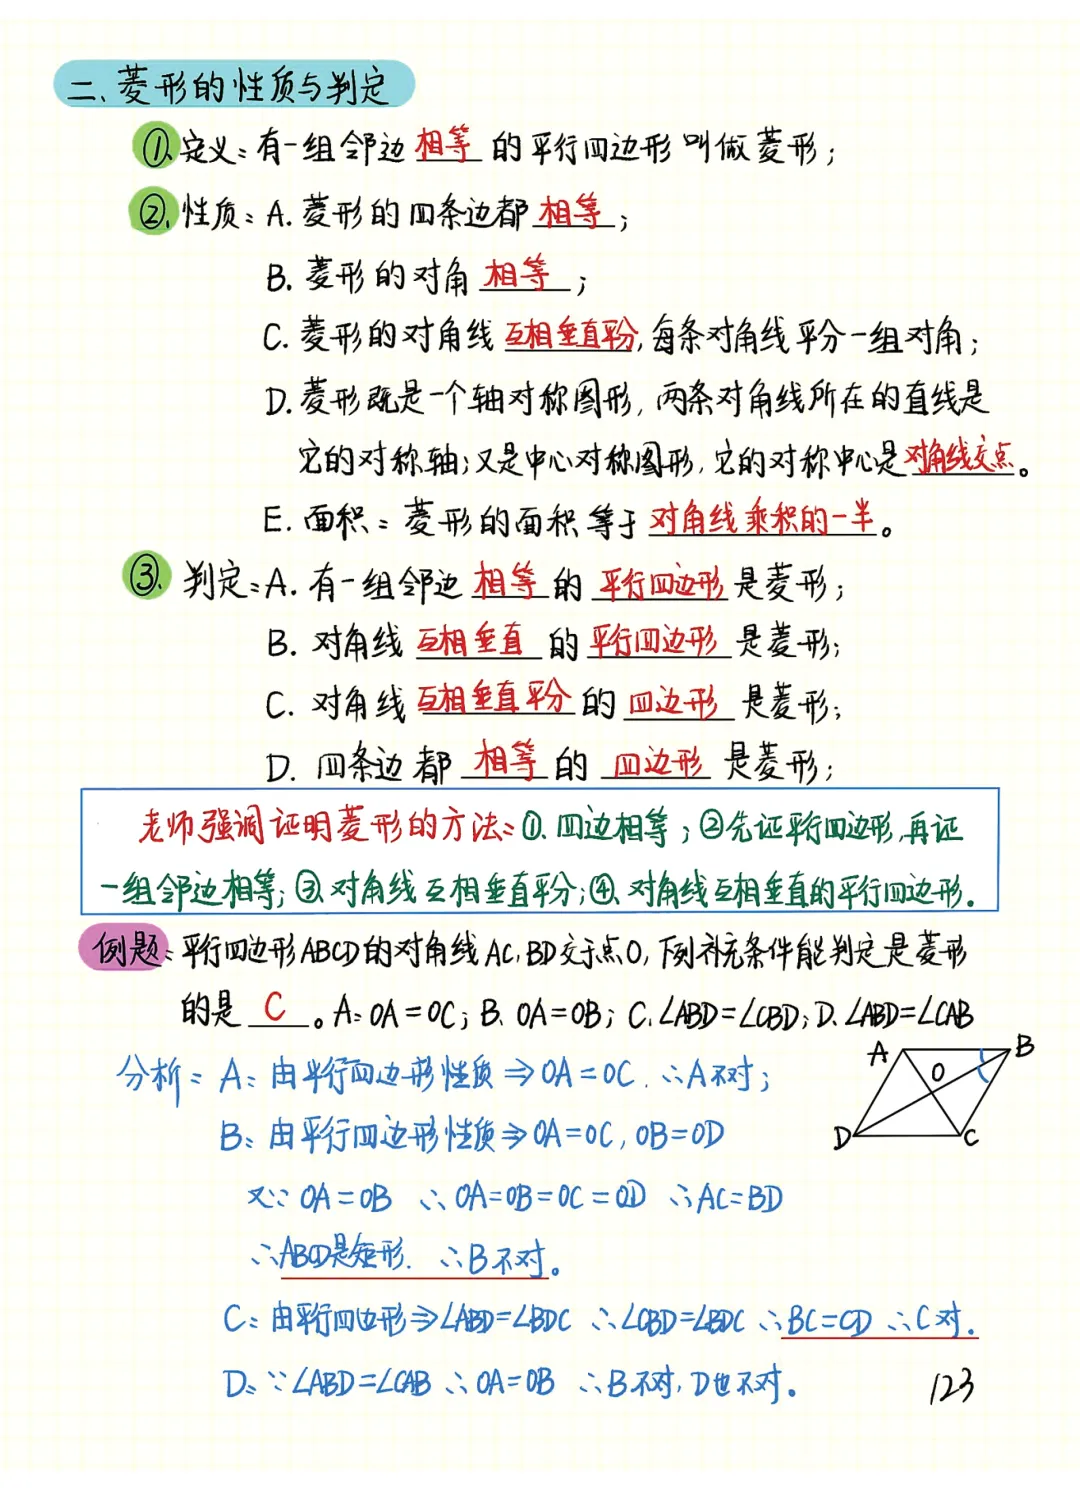 二、菱形的性质与判定
①、定义：有一组邻边相等的平行四边形叫做菱形；
②、性质：A. 菱形的四条边都相等；
B. 菱形的对角相等；
C. 菱形的对角线互相垂直平分，每条对角线平分一组对角；
D. 菱形既是一个轴对称图形，两条对角线所在的直线是
它的对称轴；又是中心对称图形，它的对称中心是对角线交点。
E. 面积：菱形的面积等于对角线乘积的一半。
③、判定：A. 有一组邻边相等的平行四边形是菱形；
B. 对角线互相垂直的平行四边形是菱形；
C. 对角线互相垂直平分的四边形是菱形；
D. 四条边都相等的四边形是菱形；
老师强调证明菱形的方法：①、四边相等；②先证平行四边形，再证
一组邻边相等；③、对角线互相垂直平分；④、对角线互相垂直的平行四边形。
例题：平行四边形ABCD的对角线AC，BD交于点O，下列补充条件能判定是菱形
的是 C 。A：OA=OC；B、OA=OB；C、∠ABD=∠CBD；D、∠ABD=∠CAB
分析：A：由平行四边形性质⇒OA=OC．∴A不对；
A B
O
D C
B：由平行四边形性质⇒OA=OC，OB=OD
又∵OA=OB ∴OA=OB=OC=OD ∴AC=BD
∴ABCD是矩形．∴B不对。
C：由平行四边形⇒∠ABD=∠BDC ∴∠CBD=∠BDC ∴BC=CD ∴C对．
D：∵∠ABD=∠CAB ∴OA=OB ∴B不对，D也不对。
123